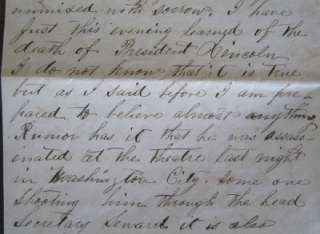 mixed with sorrow. I have
just this evening learned of the
death of President Lincoln
I do not know that it is true
but as I said before I am pre-
pared to believe almost anything
Rumor has it that he was assas-
enated at the theatre last night
in Washington City. Some one
shooting him through the head
Secretary Seward it is also